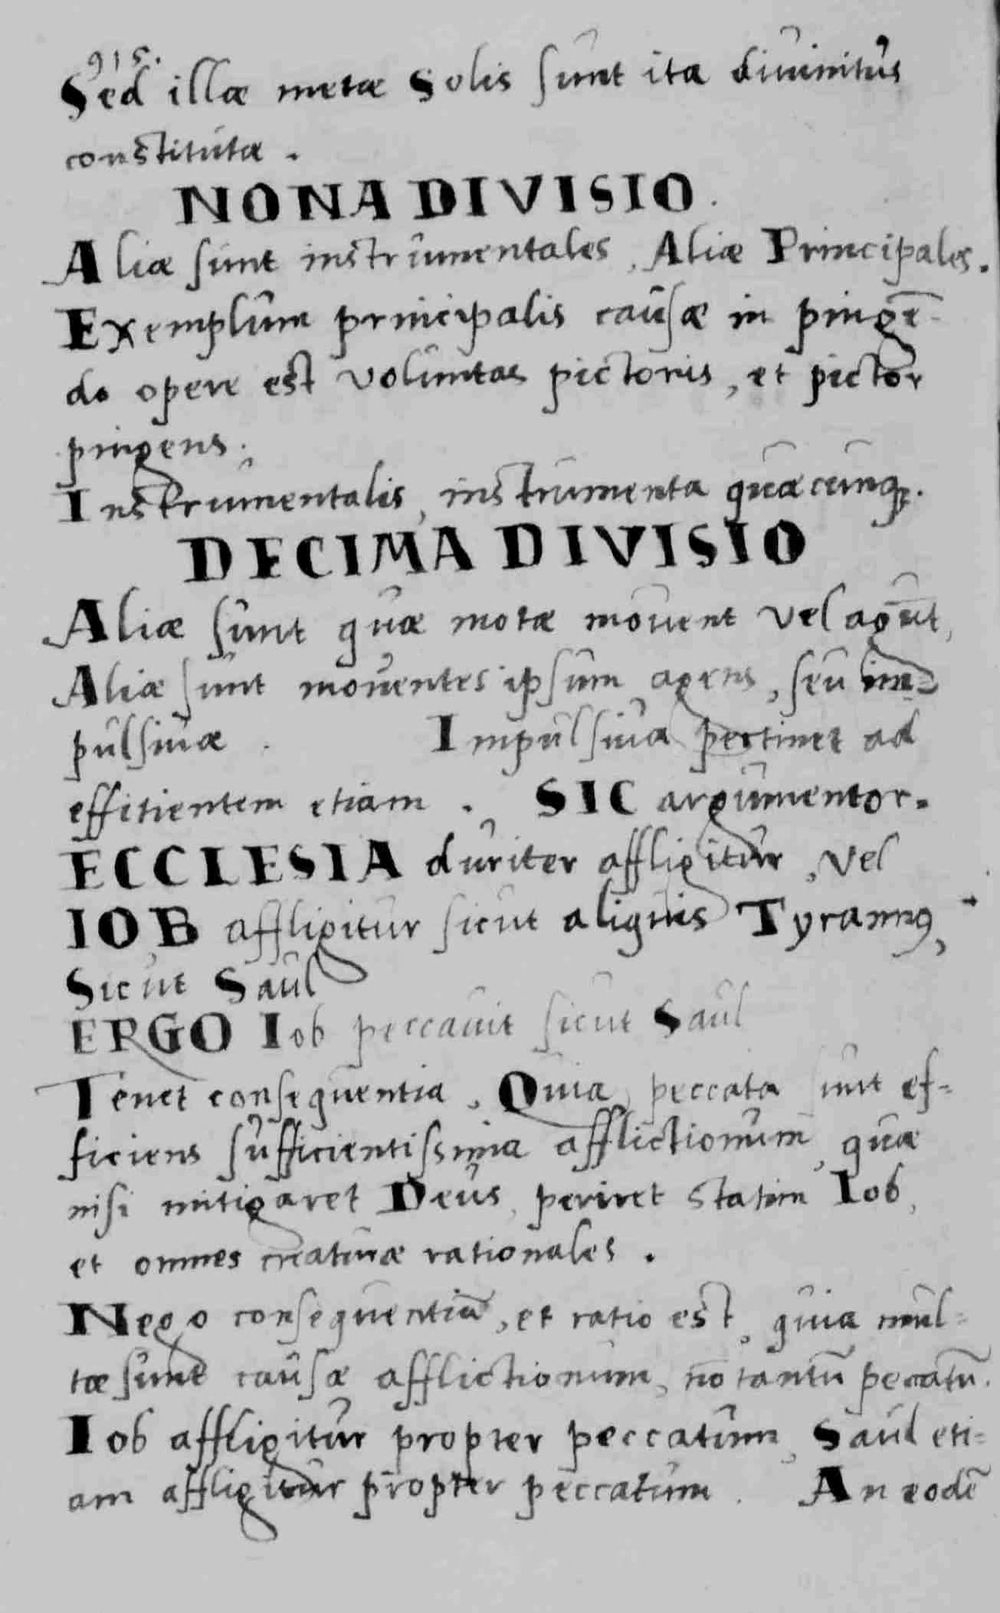 915.
Sed illæ metæ Solis sunt ita diuinitus
constitutæ .
NONA DIVISIO .
Aliæ sunt instrumentales , Aliæ Principales .
Exemplum principalis causæ in pingē-
do opere est voluntas pictoris , et pictor
pingens .
Instrumentalis , instrumenta quæcunqꝫ .
DECIMA DIVISIO
Aliæ sunt quæ motæ mouent vel agunt ,
Aliæ sunt mouentes ipsum agens , seu im=
pulsiuæ . Impulsiua pertinet ad
effitientem etiam . SIC argumentor .
ECCLESIA duriter affligitur , vel
IOB affligitur sicut aliquis Tyrannꝰ ,
Sicut Saul
ERGO Iob peccauit sicut Saul
Tenet consequentia , Quia peccata sunt ef=
ficiens sufficientissima afflictionum , quæ
nisi mitigaret Deus , periret statim Iob ,
et omnes creaturæ rationales .
Nego consequentiā , et ratio est , quia mul=
tæ sunt causæ afflictionum , nō tantū peccatū .
Iob affligitur propter peccatum , Saul eti=
am affligitur propter peccatum . An eodē